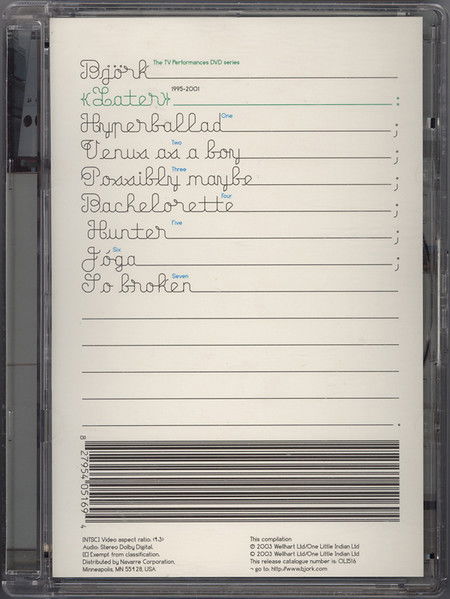 Björk The TV Performances DVD series
‹Later› 1995-2001 :
Hyperballad One ;
Venus as a boy Two ;
Possibly maybe Three ;
Bachelorette Four ;
Hunter Five ;
Jóga Six ;
So broken Seven
.
8 27954 05169 4
[NTSC] Video aspect ratio: 4:3
Audio: Stereo Dolby Digital.
[E] Exempt from classification.
Distributed by Navarre Corporation,
Minneapolis, MN 55428, USA.
This compilation
℗ 2003 Wellhart Ltd/One Little Indian Ltd
© 2003 Wellhart Ltd/One Little Indian Ltd
This release catalogue number is: OLI516
¬ go to: http://www.bjork.com